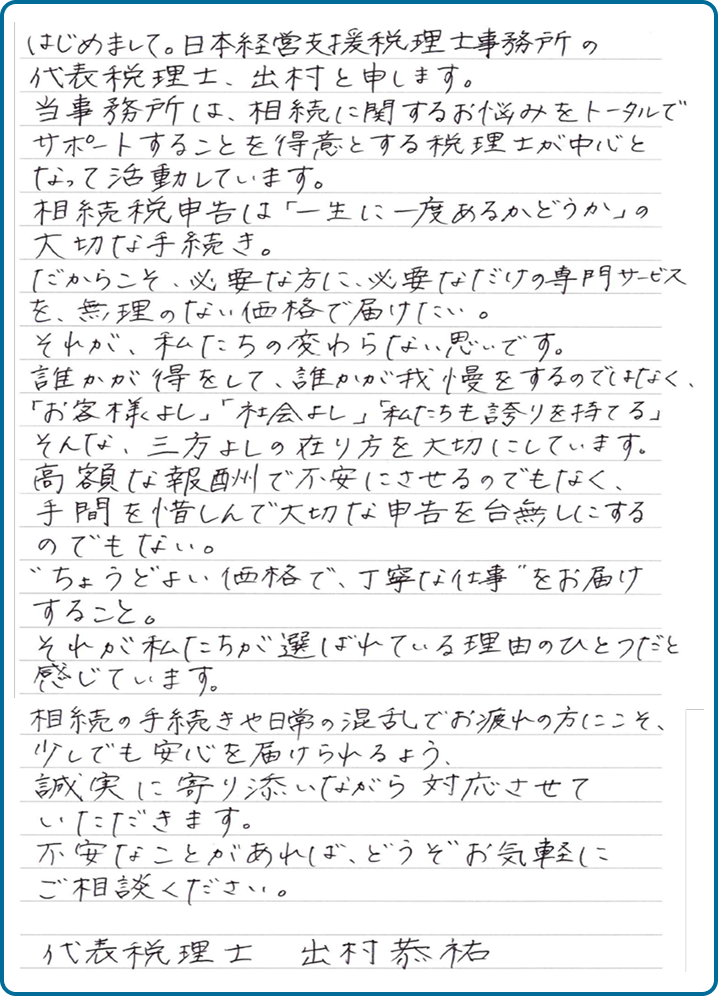 はじめまして。日本経営支援税理士事務所の
代表税理士、出村と申します。
当事務所は、相続に関するお悩みをトータルで
サポートすることを得意とする税理士が中心と
なって活動しています。
相続税申告は「一生に一度あるかどうか」の
大切な手続き。
だからこそ、必要な方に、必要なだけの専門サービス
を、無理のない価格で届けたい。
それが、私たちの変わらない思いです。
誰かが得をして、誰かが我慢をするのではなく、
「お客様よし」「社会よし」「私たちも誇りを持てる」
そんな、三方よしの在り方を大切にしています。
高額な報酬で不安にさせるのでもなく、
手間を惜しんで大切な申告を台無しにする
のでもない。
“ちょうどよい価格で、丁寧な仕事”をお届け
すること。
それが私たちが選ばれている理由のひとつだと
感じています。
相続の手続きや日常の混乱でお疲れの方にこそ、
少しでも安心を届けられるよう、
誠実に寄り添いながら対応させて
いただきます。
不安なことがあれば、どうぞお気軽に
ご相談ください。
代表税理士 出村恭祐